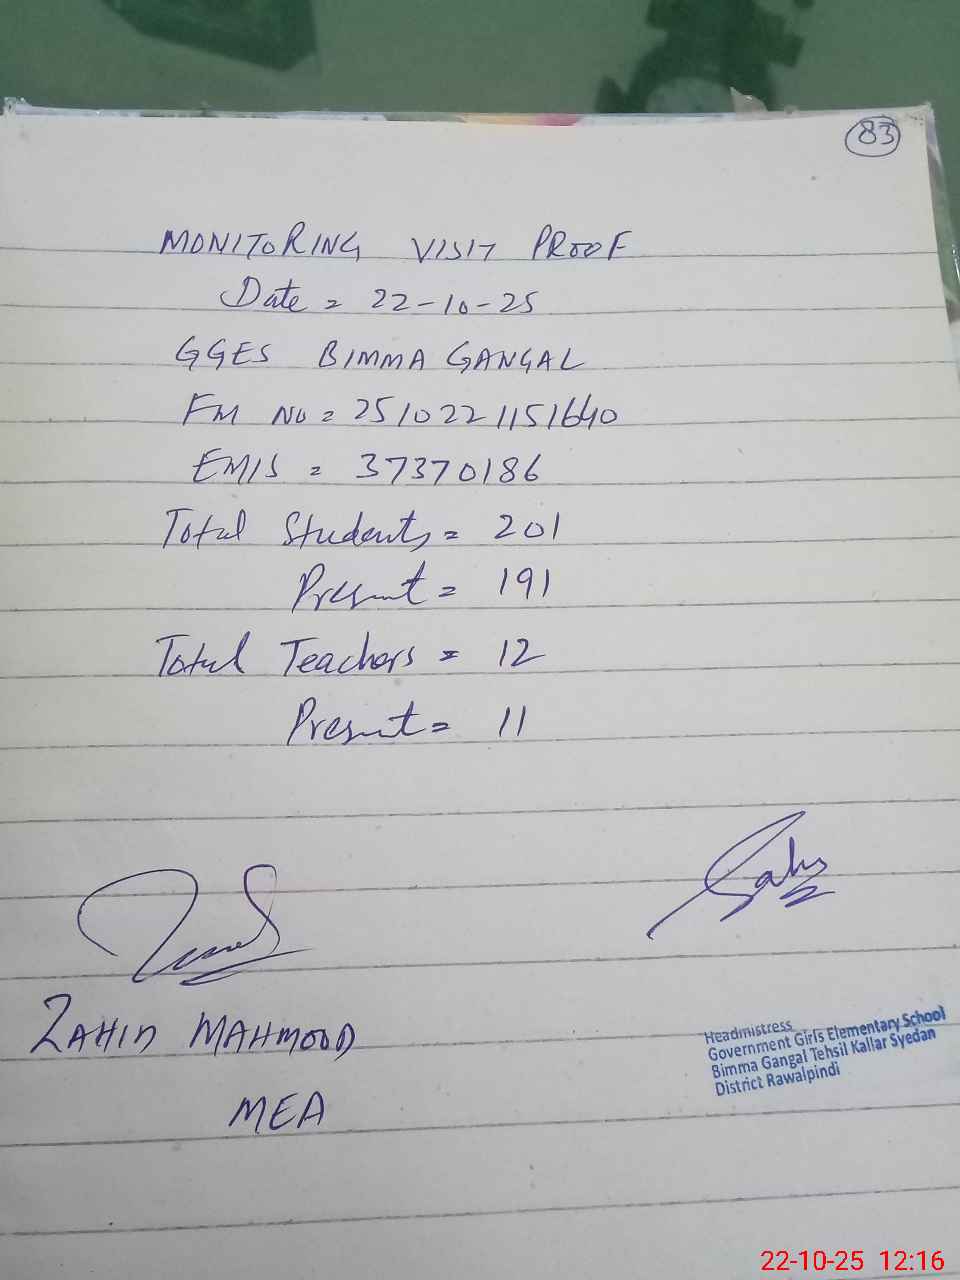 83
MONITORING VISIT PROOF
Date = 22-10-25
GGES BIMMA GANGAL
FM No = 2510221151640
EMIS = 37370186
Total Students = 201
Present = 191
Total Teachers = 12
Present = 11
ZAHID MAHMOOD
MEA
Headmistress
Government Girls Elementary School
Bimma Gangal Tehsil Kallar Syedan
District Rawalpindi
22-10-25 12:16